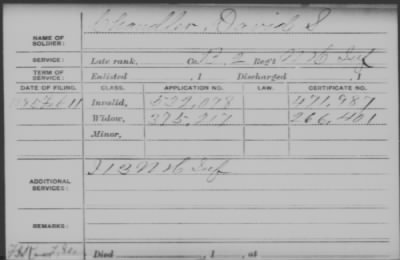 Chandler, David S
NAME OF
SOLDIER:
SERVICE: Late rank, Co. B, 2 Reg't N H Inf
TERM OF
SERVICE: Enlisted , 1 Discharged , 1
DATE OF FILING. CLASS. APPLICATION NO. LAW. CERTIFICATE NO.
Invalid, 471,987
Widow, 375,217 266,401
Minor,
13 N H Inf
ADDITIONAL
SERVICES:
REMARKS:
Died , 1 , at